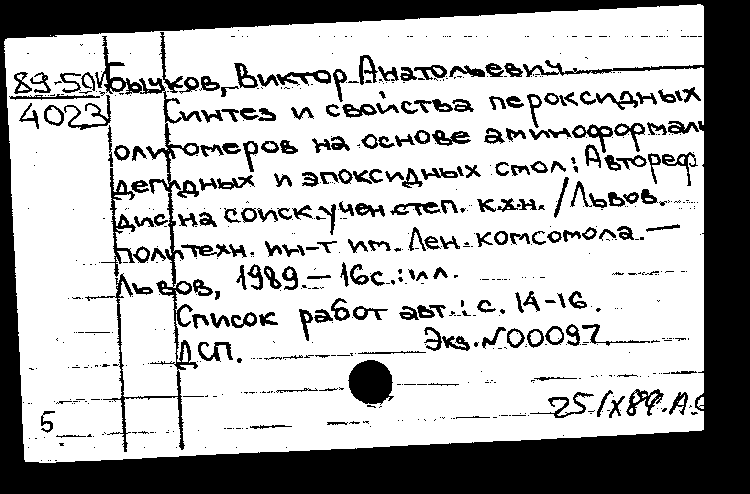 89-50к Бычков, Виктор Анатольевич.
4023 Синтез и свойства пероксидных
олигомеров на основе аминоформаль
дегидных и эпоксидных смол: Автореф.
дис.на соиск.учен.степ. к.х.н. / Львов.
политехн. ин-т им. Лен. комсомола. —
Львов, 1989. — 16с.: ил.
Список работ авт.: с. 14-16.
ДСП. Экз. №00097.
25/IX89.А.
5